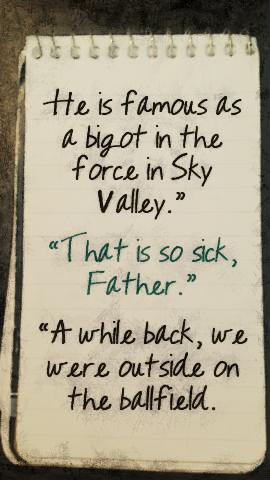 He is famous as
a bigot in the
force in Sky
Valley.”
“That is so sick,
Father.”
“A while back, we
were outside on
the ballfield.